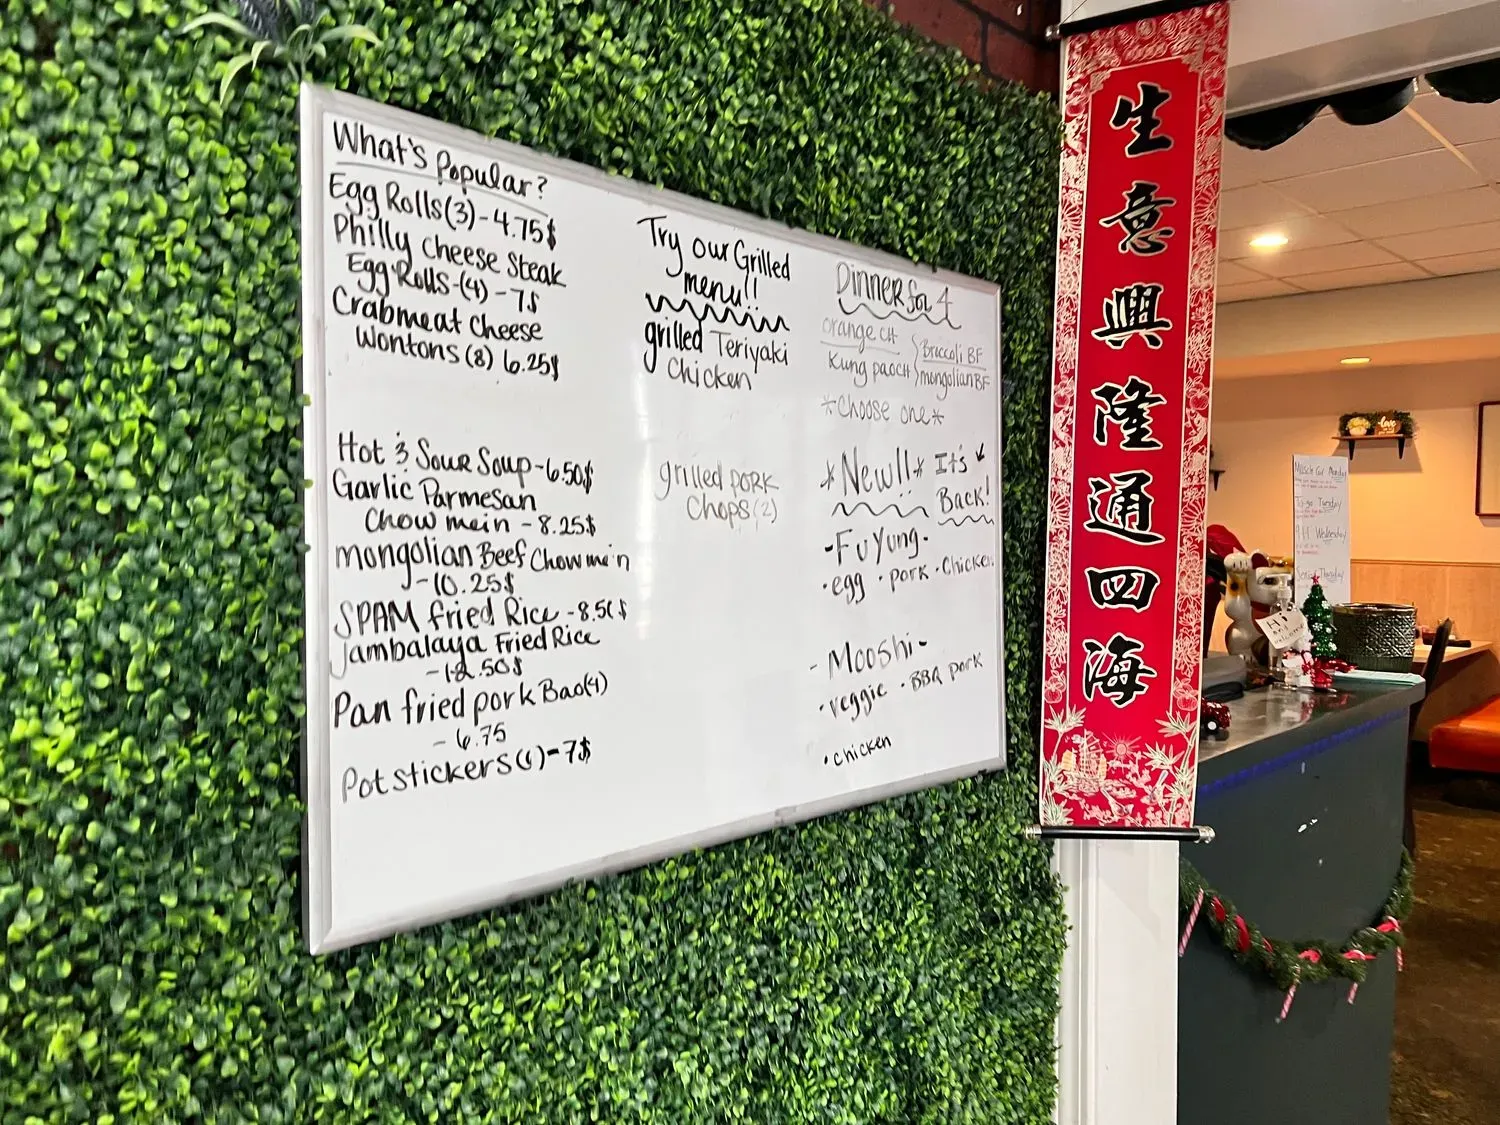 What's Popular?
Egg Rolls(3)-4.75$
Philly cheese Steak
Egg Rolls-(4)-7$
Crabmeat Cheese
Wontons(8) 6.25$
Hot & Sour Soup-6.50$
Garlic Parmesan
Chow mein - 8.25$
mongolian Beef Chow mein
-10.25$
SPAM fried Rice-8.50$
Jambalaya Fried Rice
-12.50$
Pan fried pork Bao(4)
-6.75
Potstickers(6)-7$
Try our Grilled
menu!!
grilled Teriyaki
Chicken
grilled PORK
Chops(2)
Dinner for 4
orange CH
Broccoli BF
Kung pao CH
mongolian BF
*Choose one*
*New!!* It's
Back!
-Fu Yung-
•egg •pork •Chicken
-Mooshi-
•veggie •BBQ pork
•chicken
生
意
興
隆
通
四
海
love
Tuesday
Wednesday
Thursday